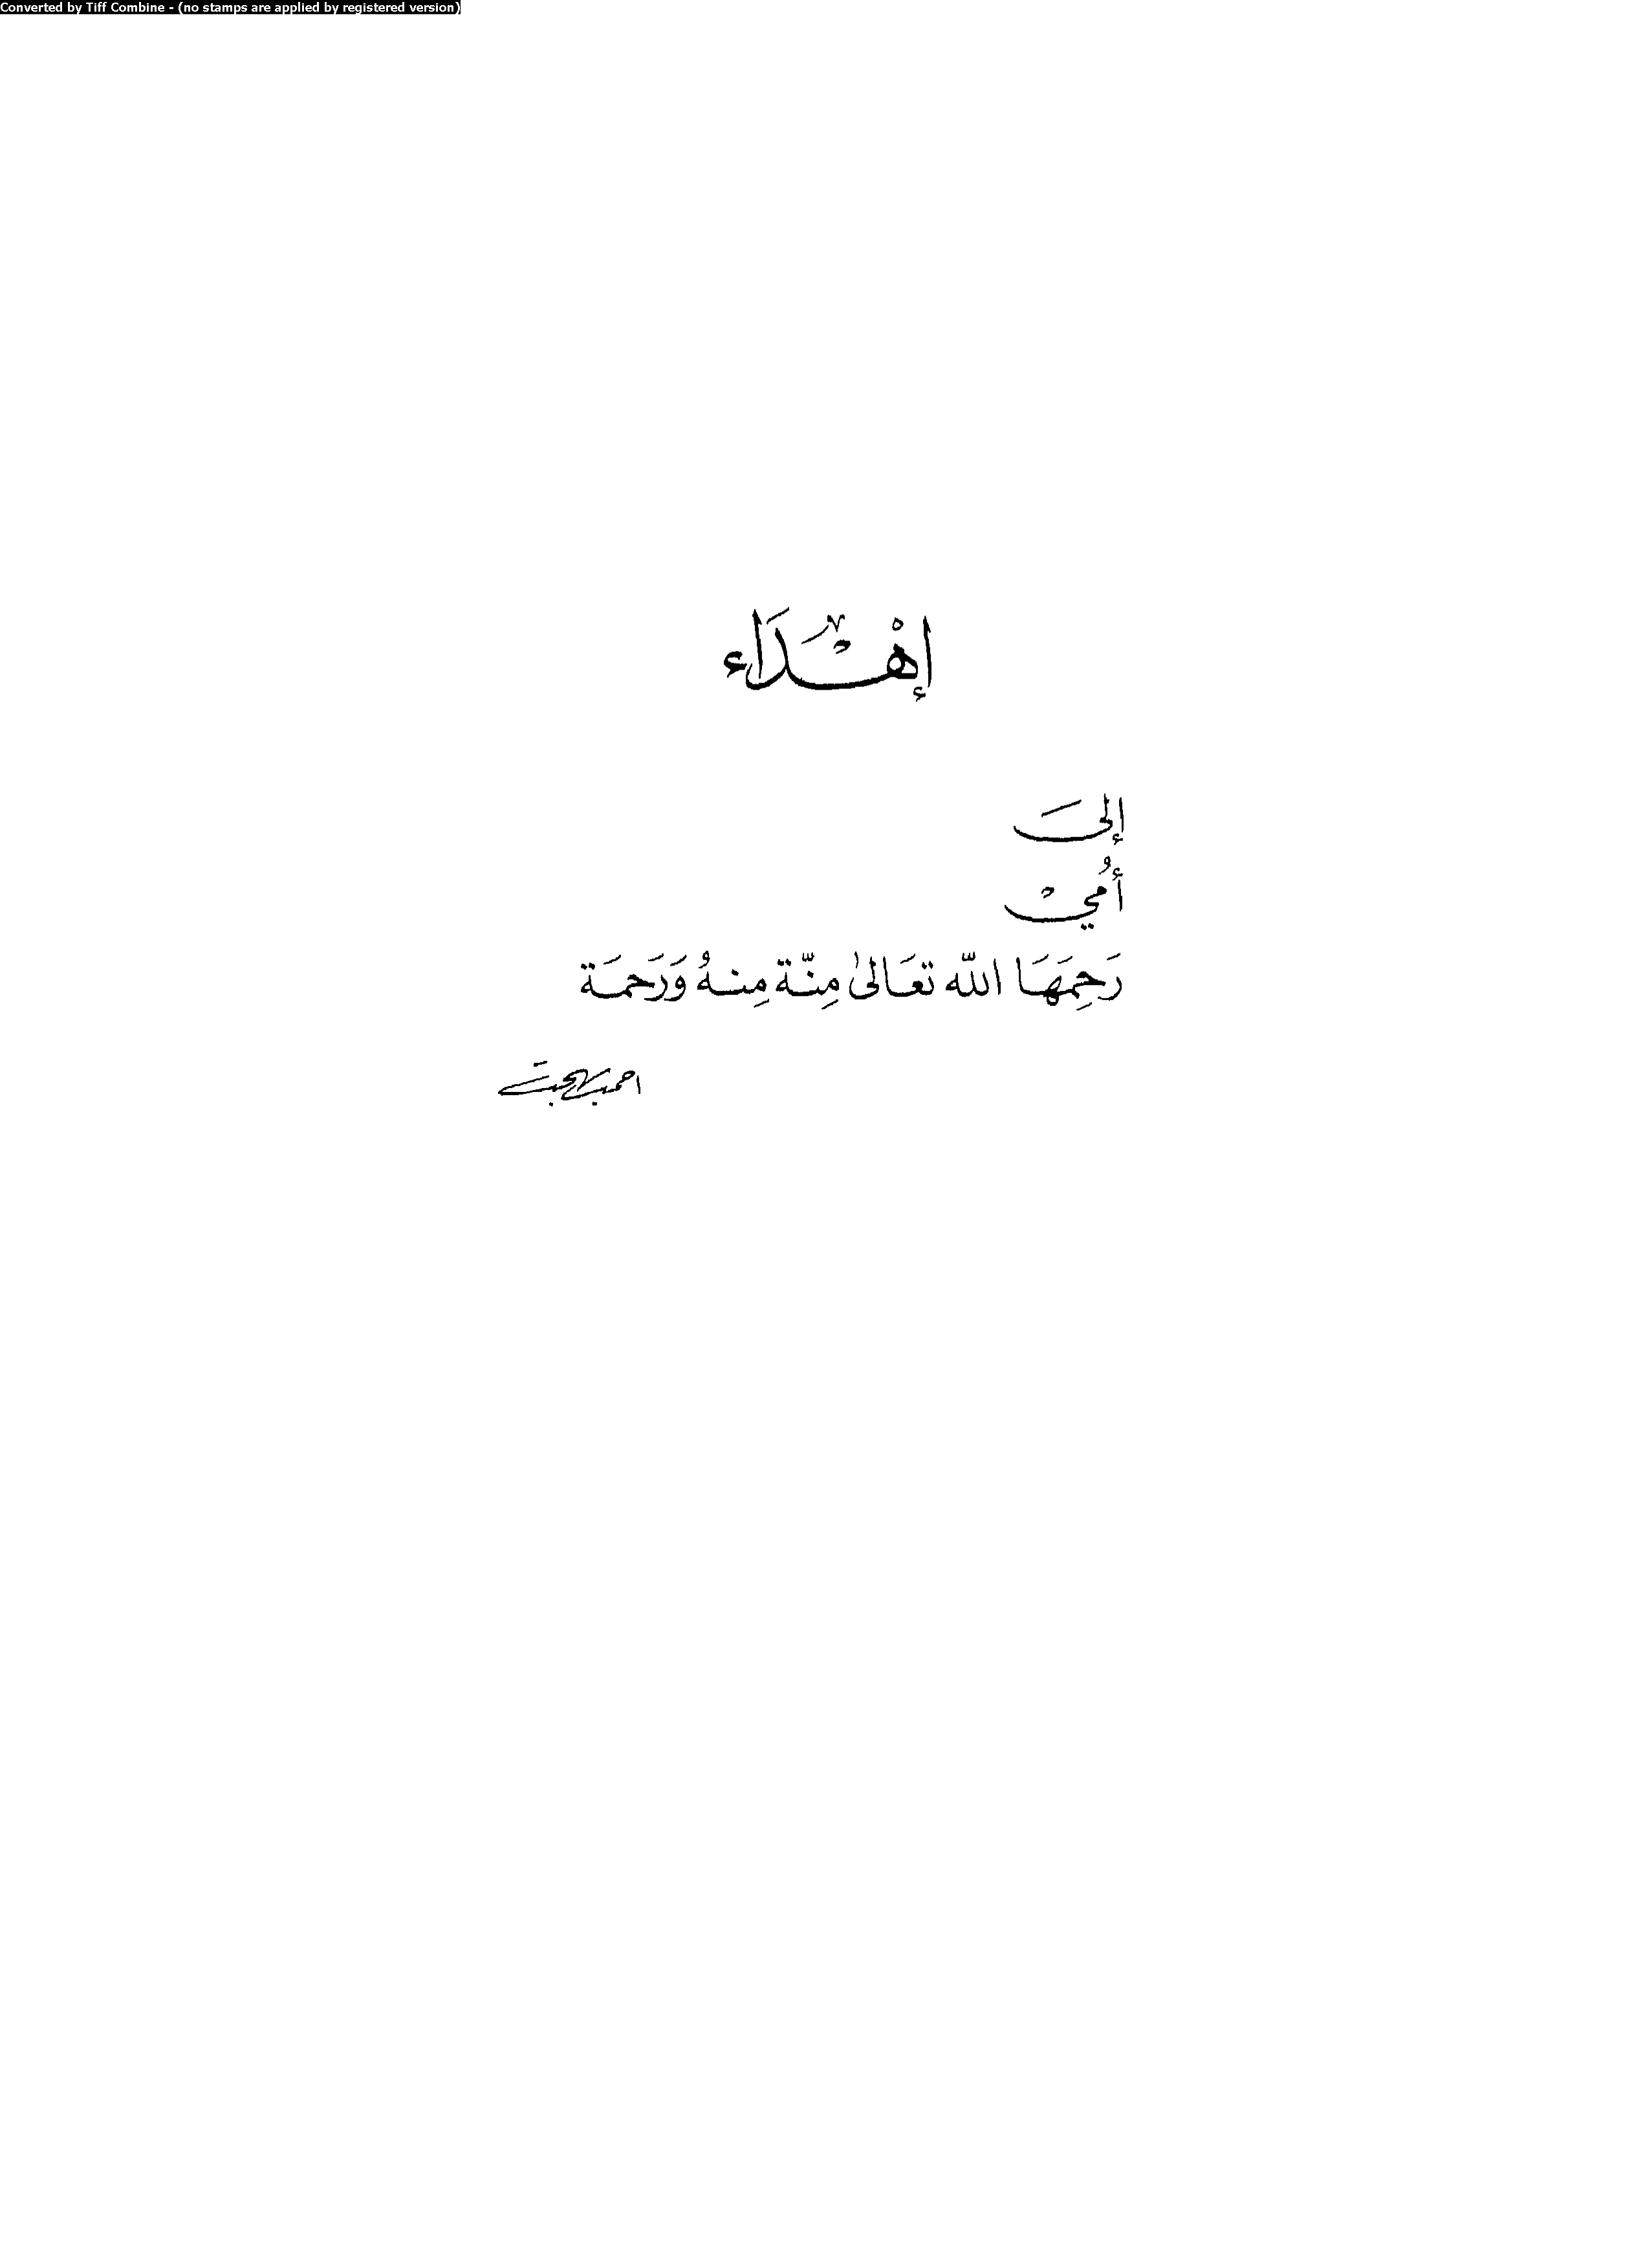 Converted by Tiff Combine - (no stamps are applied by registered version)
إهْدَاء
إلىَ
أُمي
رَحِمَهَا اللّه تعَالىٰ مِنّة مِنهُ وَرَحمَة
احمد بهجت